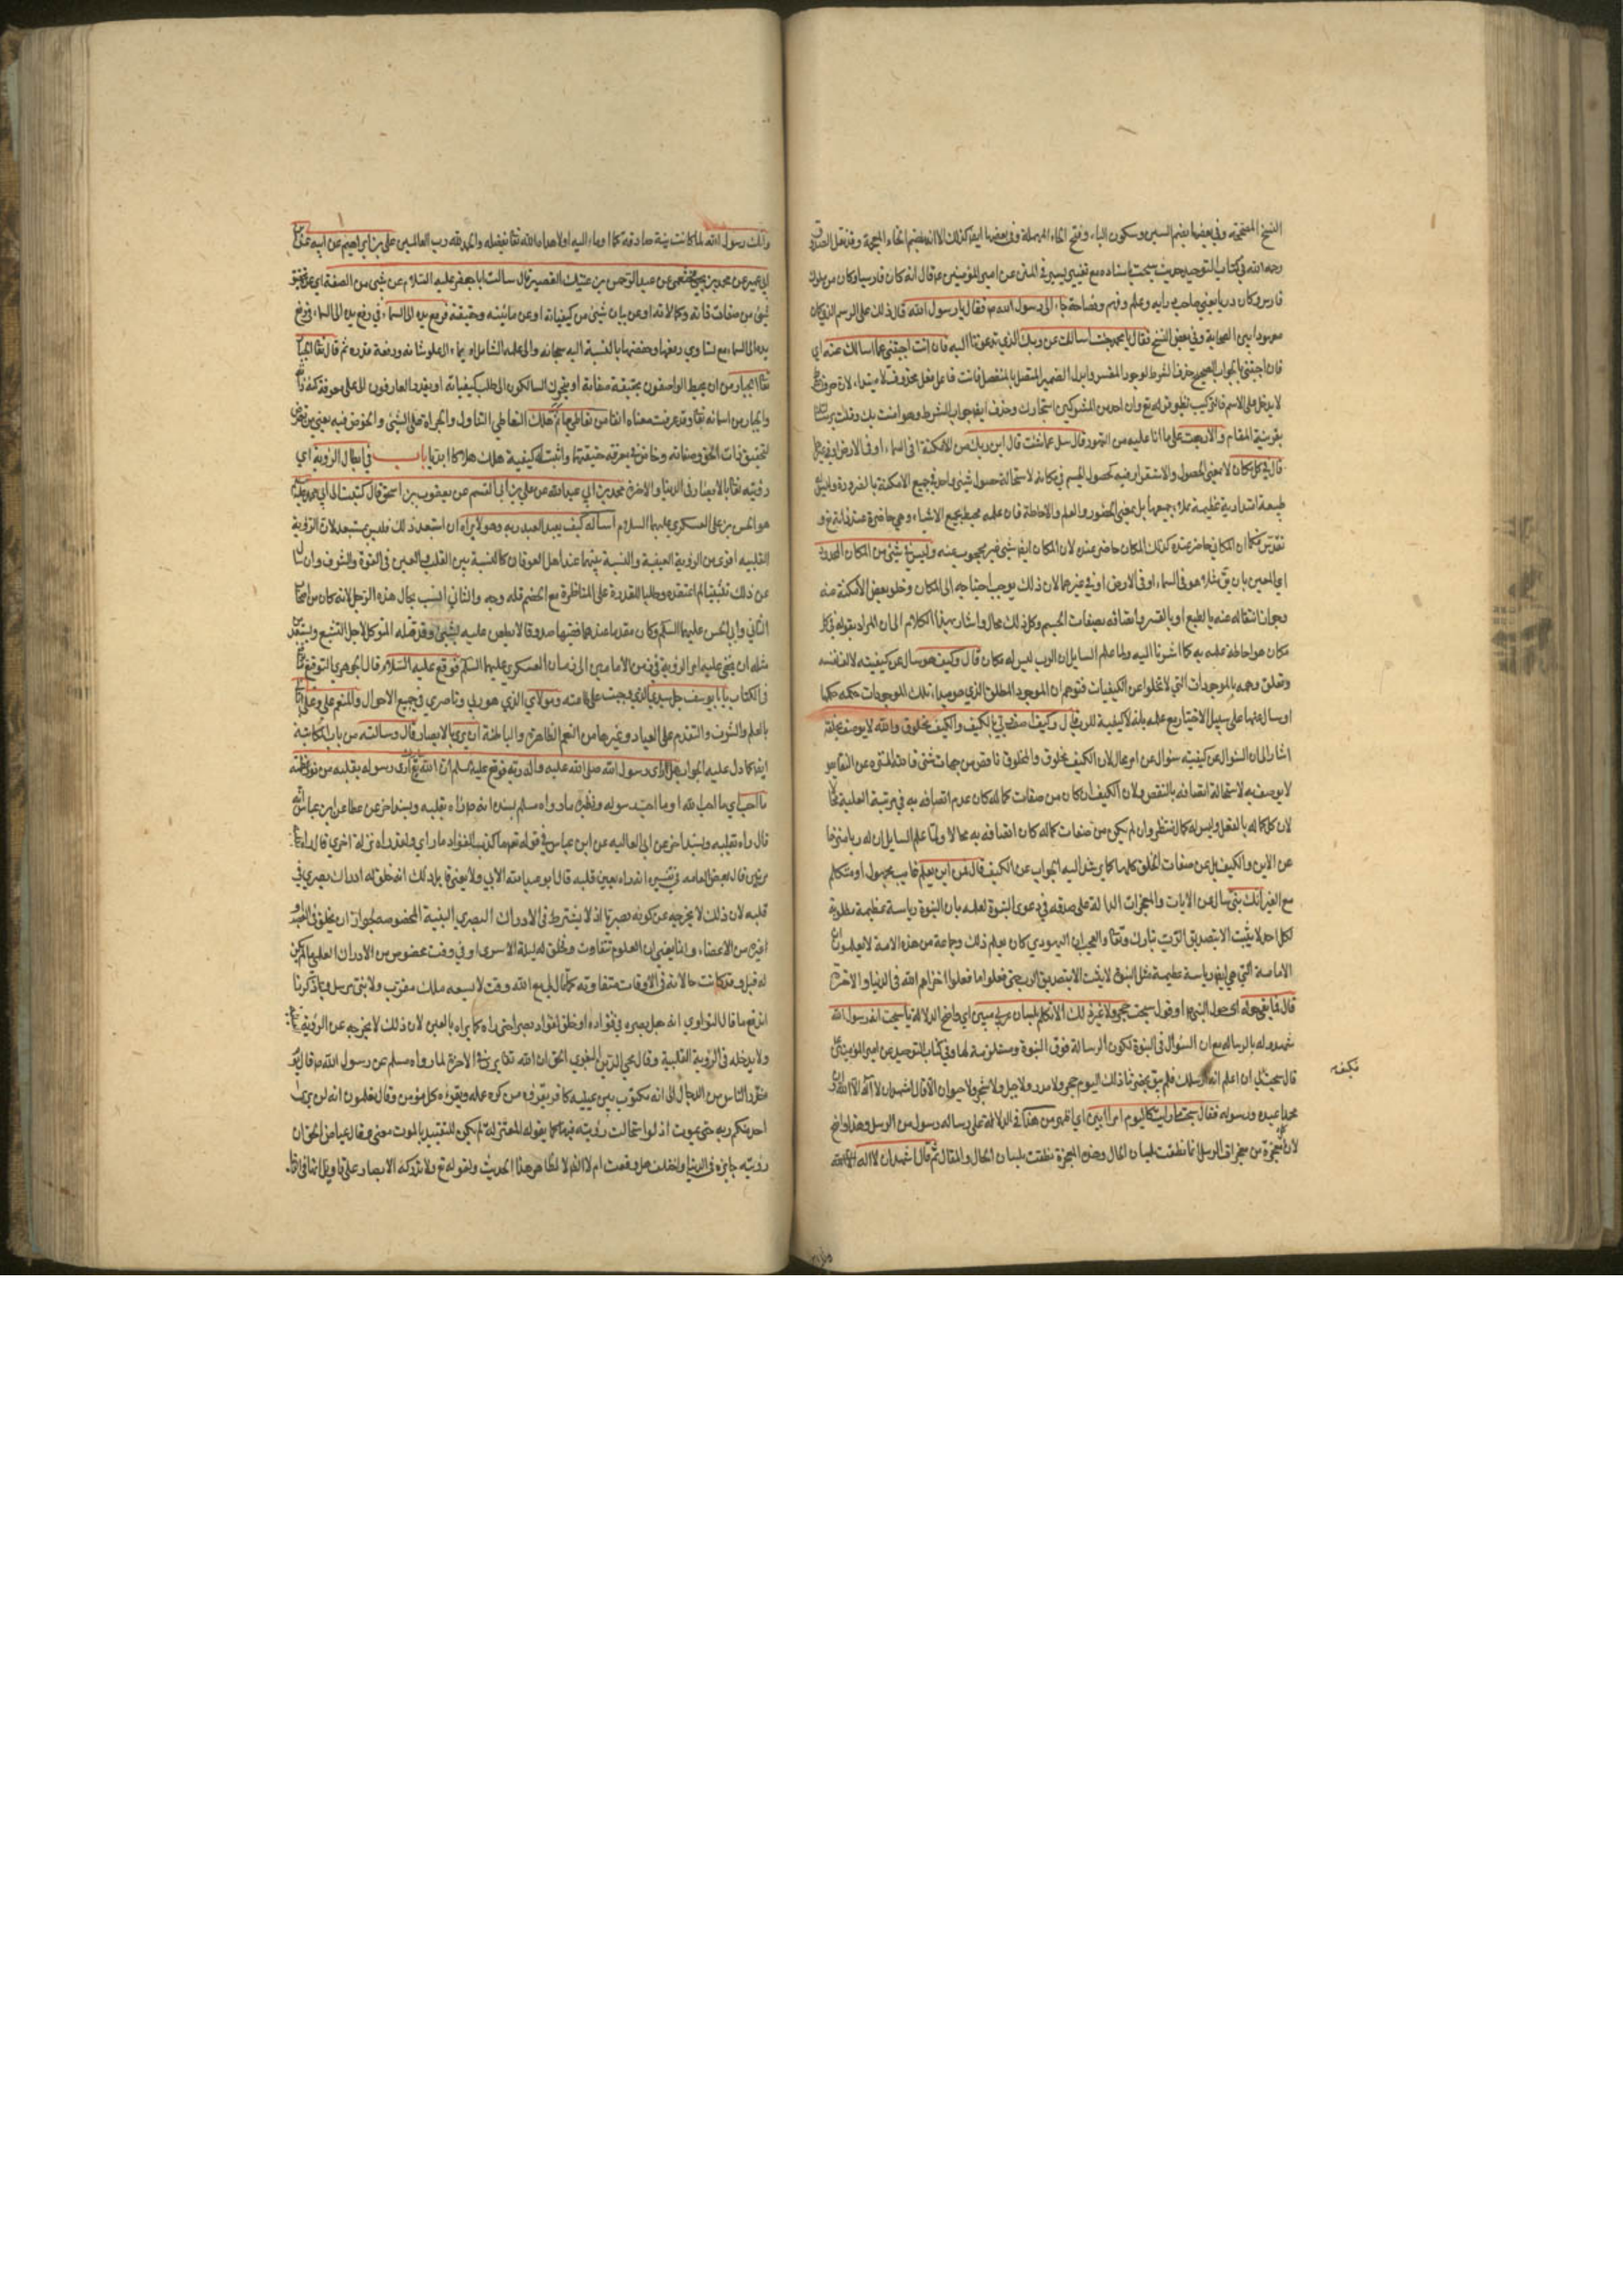 النسخ المصححة وفي بعضها بضم السين وسكون الباء وفتح الحاء المهملة وفي بعضها ايضا كذلك الا انه بضم الخاء المعجمة وقد نقل الصدوق
رحمه الله في كتاب التوحيد حديث سبحت باسناده مع تغيير يسير في المتن عن امير المؤمنين ع قال انه كان فارسيا وكان من ملوك
فارس وكان دربا يعني صاحب راي وعلم وفهم وفصاحة جاء الى رسول الله ص فقال يا رسول الله قال ذلك على الرسم الذي كان
معهودا بين الصحابة وفي بعض النسخ فقال يا محمد جئت اسالك عن ربك الذي تدعونا اليه فان انت اجبتني عما اسالك عنه اي
فان اجبتني بالجواب الصحيح حذف الشرط لوجود المفسر وابدل الضمير المتصل بالمنفصل فانت فاعل فعل محذوف لا مبتدا لان حرف
لا يدخل على الاسم فالتركيب نظير قوله تع وان احد من المشركين استجارك وحذف ايضا جواب الشرط وهو امنت بك وقلت
بقرينة المقام والا رجعت على ما انا عليه من التهود قال سل عما شئت قال اين ربك من الامكنة افي السماء او في الارض او في
قال في كل مكان لا بمعنى الحصول والاستقرار فيه كحصول الجسم في مكانه لاستحالة حصول شيء واحد في جميع الامكنة بالضرورة وليس
طبيعة امتدادية عظيمة مملوء جميعها بل بمعنى الحضور والعلم والاحاطة فان علمه محيط بجميع الاشياء وهي حاضرة عند ذاته تع و
تقدس فكما ان المكاني حاضر عنده كذلك المكان حاضر عنده لان المكان ايضا شيء غير محجوب عنه وليس في شيء من المكان المحدود
اي المعين بان يق مثلا هو في السماء او في الارض او في غيرهما لان ذلك يوجب احتياجه الى المكان وخلو بعض الامكنة منه
وجواز انتقاله عنه بالطبع او بالقسر واتصافه بصفات الجسم وكل ذلك محال واشار بهذا الكلام الى ان المراد بقوله في كل
مكان هو احاطة علمه به كما اشرنا اليه ولما علم السايل ان الرب ليس له مكان قال وكيف هو سال عن كيفيته لالف نفسه
وتعلق وهمه بالموجودات التي لا تخلوا عن الكيفيات فتوهم ان الموجود المطلق الذي هو مبداء تلك الموجودات حكمه حكمها
او سال عنها على سبيل الاختبار مع علمه بانه لا كيفية للرب قال وكيف اصف ربي بالكيف والكيف مخلوق والله لا يوصف بخلقه
اشار الى ان السؤال عن كيفيته سؤال عن امر محال لان الكيف مخلوق والمخلوق ناقص من جهات شتى فالله المنزه عن النقايص
لا يوصف به لاستحالة اتصافه بالنقص ولان الكيف ان كان من صفات كماله كان عدم اتصافه به في مرتبة العلية
لان كل كماله بالفعل وليس له كمال منتظر وان لم يكن من صفات كماله كان اتصافه به محالا ولما علم السايل ان له ربا منزها
عن الاين والكيف بل عن صفات الخلق كلها كما يرشد اليه الجواب عن الكيف قال فمن اين يعلم
مع الغير انك نبي سال عن الايات والمعجزات الدالة على صدقه في دعوى النبوة لعلمه بان النبوة رياسة عظيمة مطلوبة
لكل احد لا يثبت الا بتصديق الرب تبارك وتعالى والعجب ان اليهودي كان يعلم ذلك وجماعة من هذه الامة لا يعلمون ان
الامامة التي هي ايضا رياسة عظيمة مثل النبوة لا يثبت الا بتصديق الرب حتى فعلوا ما فعلوا اخزاهم الله في الدنيا والاخرة
قال فما بقي حوله اي حول النبي ص او حول سبحت حجر ولا غير ذلك الا تكلم بلسان عربي مبين اي واضح الدلالة يا سبحت انه رسول الله
شهدوا له بالرسالة مع ان السؤال في النبوة لكون الرسالة فوق النبوة ومستلزمة لها وفي كتاب التوحيد عن امير المؤمنين
قال سبحت بان اعلم انه ارسلك فلم يبق بحضرتنا ذلك اليوم حجر ولا مدر ولا جبل ولا شجر ولا حيوان الا قال اشهد ان لا اله الا الله وان
محمدا عبده ورسوله فقال سبحت ما رايت كاليوم امرا ابين اي اظهر من هذا في الدلالة على رسالة رسول من الرسل وهذا واضح
لان معجزة من معجزات الرسل انما نطقت بلسان الحال وهذه المعجزة نطقت بلسان الحال والمقال ثم قال اشهد ان لا اله الا الله
يكفه
وانك رسول الله لما كانت نيته صادقة كما اوماء اليه اولا هداه الله تعالى بفضله والحمد لله رب العالمين علي بن ابراهيم عن ابيه عن
ابي عمير عن محمد بن يحيى الخثعمي عن عبد الرحمن بن عتيك القصير قال سالت ابا جعفر عليه السلام عن شيء من الصفة اي عن
شيء من صفات ذاته وكمالاته او عن بيان شيء من كيفياته او عن مائيته وحقيقته فرفع يده الى السماء في رفع يده الى السماء
يده الى السماء مع تساوي رفعها وخفضها بالنسبة اليه سبحانه والى علمه الشامل ايماء الى علو شانه ورفعة قدره ثم قال تعالى الجبار
تعالى الجبار من ان يحيط الواصفون بحقيقة صفاته او يتحرك السالكون الى طلب كيفياته او يقدر العارفون على معرفة كنه ذاته
والجبار من اسمائه تعالى وقد عرفت معناه انفا من تعاطى ما ثم هلك التعاطي التناول والجراة على الشيء والخوض فيه يعني من تعرض
لتحقيق ذات الحق وصفاته وخاض في معرفة حقيقتها واثبت له كيفية هلك هلاكا ابديا باب في ابطال الرؤية اي
رؤيته تعالى بالابصار في الدنيا والاخرة محمد بن ابي عبدالله عن علي بن ابي القسم عن يعقوب بن اسحق قال كتبت الى ابي محمد
هو الحسن بن علي العسكري عليهما السلام اساله كيف يعبد العبد ربه وهو لا يراه ان استبعد ذلك فليس بمستبعد لان الرؤية
القلبية اقوى من الرؤية العينية والنسبة بينهما عند اهل العرفان كالنسبة بين القلب والعين في القوة والشرف وان سال
عن ذلك تثبيتا لما اعتقده وطلبا للقدرة على المناظرة مع الخصم فله وجه والثاني انسب بحال هذا الرجل لانه كان من اصحاب
الثاني وابي الحسن عليهما السلام وكان مقدما عندهما ثقتهما صدوقا لا يطعن عليه بشيء وقد قتله المتوكل لاجل التشيع ويستبعد
مثله ان يخفى عليه امر الرؤية في زمن الامامين الى زمان العسكري عليهما السلم فوقع عليه السلام قال الجوهري التوقيع
في الكتاب يا ابا يوسف جل سيدي الذي وجبت علي طاعته ومولاي الذي هو ربي وناصري في جميع الاحوال والمنعم علي وعلى ابائي
بالعلم والشرف والتقدم على العباد وغيرها من النعم الظاهرة والباطنة ان يرى بالابصار قال وسالته من باب المكاتبة
ايضا كما دل عليه الجواب هل راى رسول الله صلى الله عليه واله ربه فوقع عليه السلم ان الله تع ارى رسوله بقلبه من نور عظمته
ما احب اي ما احب الله او ما احبه رسوله ونظيره ما رواه مسلم بسنده انه ص راه بقلبه وبسند اخر عن عطا عن ابن عباس انه
قال راه بقلبه وبسند اخر عن ابي العاليه عن ابن عباس في قوله تعالى ما كذب الفؤاد ما راى ولقد راه نزلة اخرى قال راه
مرتين قال بعض العامه في تفسيره انه راه بعين قلبه قال ابو عبدالله الابي ولا يعنون بذلك انه خلق له ادراك بصري في
قلبه لان ذلك لا يخرجه عن كونه بصريا اذ لا يشترط في الادراك البصري البنية المخصوصة لجواز ان يخلق في اليد و
غيره من الاعضاء وانما يعني ان العلوم تتفاوت وخلق له ليلة الاسرى او في وقت مخصوص من الادراك العلمي ما لم يكن
له قبل وقد كانت حالاته في الاوقات متفاوتة كما قال لي مع الله وقت لا يسعه ملك مقرب ولا نبي مرسل وبما ذكرنا
اندفع ما قال النواوي انه جعل بصره في فؤاده او خلق لفؤاده بصرا حتى راه كما يراه بالعين لان ذلك لا يخرجه عن الرؤية
ولا يدخله في الرؤية القلبية وقال محي الدين البغوي الحق ان الله تعالى يرى في الاخرة لما رواه مسلم عن رسول الله ص قال
حذر الناس من الدجال الى انه مكتوب بين عينيه كافر يقرؤه من كره عمله ويقرؤه كل مؤمن وقال تعلمون انه لن يرى
احد منكم ربه حتى يموت اذ لو استحالت رؤيته فيها كما يقوله المعتزلة لم يكن للتقييد بالموت معنى وقال عياض الحق ان
رؤيته جايزة في الدنيا واختلف هل وقعت ام لا الا انه لا لظاهر هذا الحديث ولقوله تع ولا تدركه الابصار